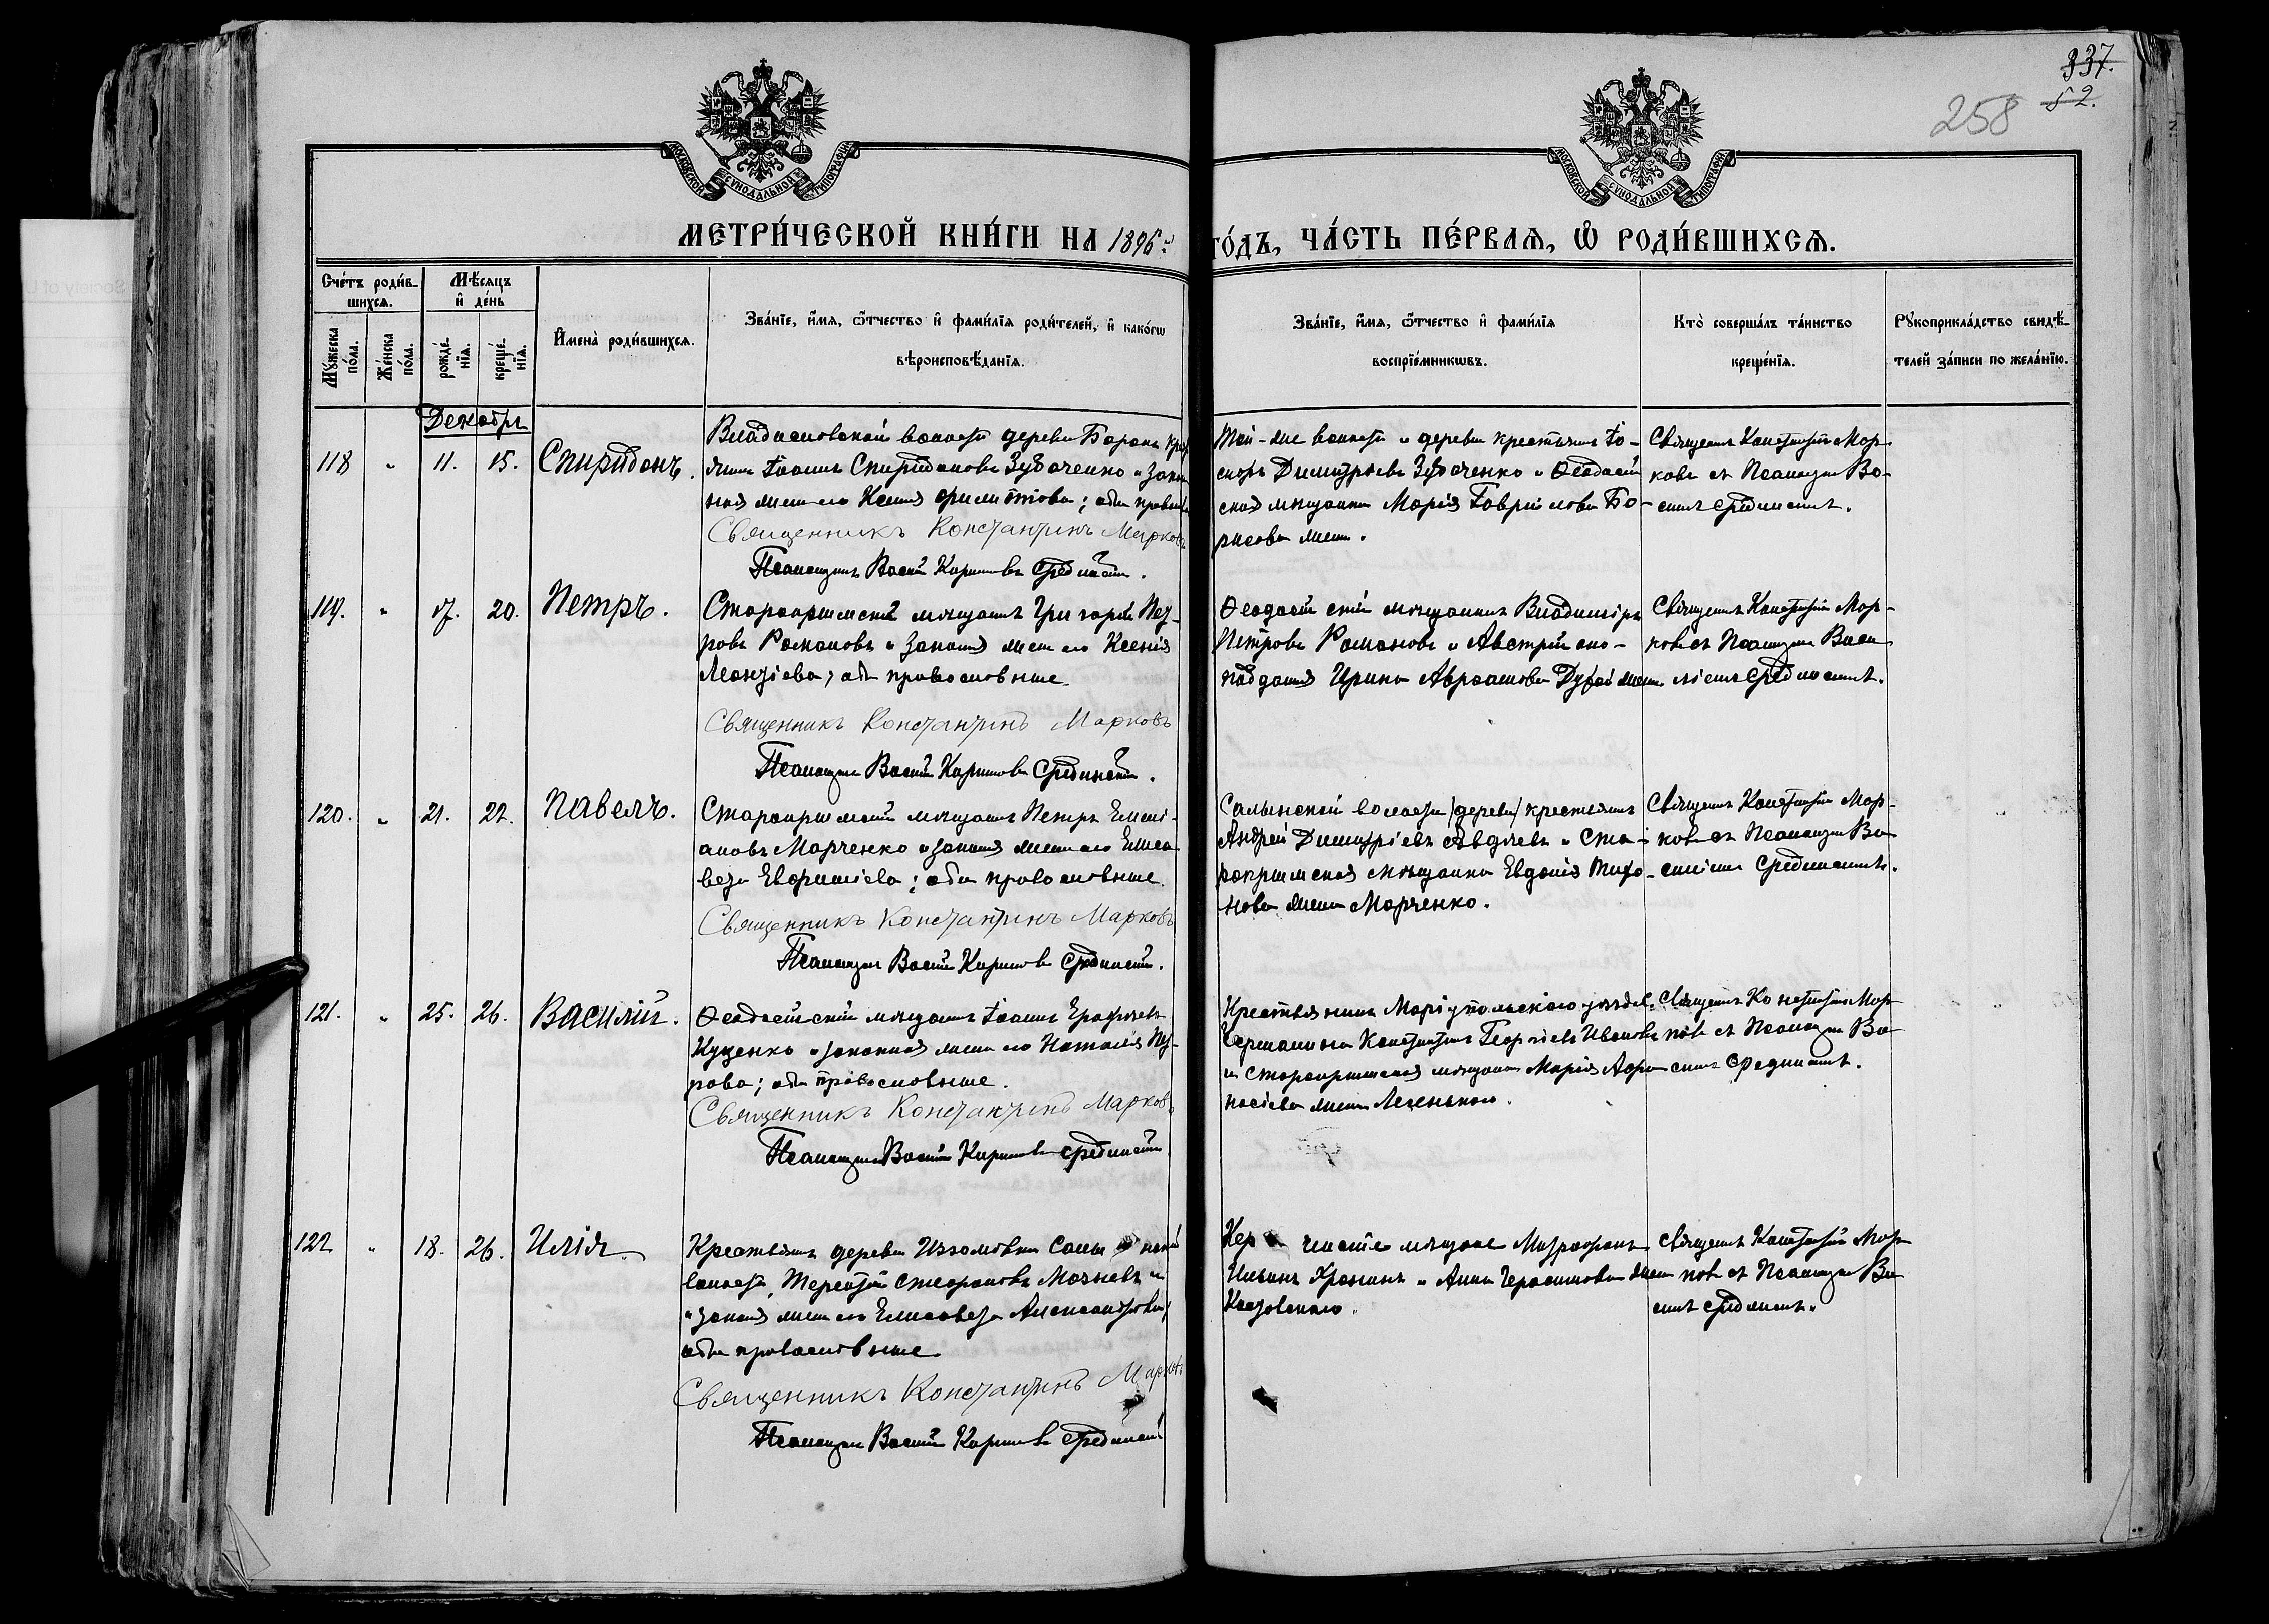 337.
52.
258
МОСКОВСКОЙ СѴНОДАЛЬНОЙ ТИПОГРАФІИ
МОСКОВСКОЙ СѴНОДАЛЬНОЙ ТИПОГРАФІИ
МЕТРИ́ЧЕСКОЙ КНИ́ГИ НА 1896й
ГО́ДЪ, ЧА́СТЬ ПЕ́РВАЯ, Ѡ РОДИ́ВШИХСЯ.
Сче́тъ роди́в-
шихся.
Мꙋ́жеска по́ла.
Же́нска по́ла.
Мѣ́сяцъ
и҆ де́нь
рожде́-нїя.
креще́-нїя.
И҆мена̀ роди́вшихся.
Зва́нїе, и҆́мя, ѻ҆́тчество и҆ фами́лїя роди́телей, и҆ како́гѡ
вѣроисповѣ́данїя.
Зва́нїе, и҆́мя, ѻ҆́тчество и҆ фами́лїя
воспрїе́мникѡвъ.
Кто̀ соверша́лъ та́инство
креще́нїя.
Рꙋкоприкла́дство свидѣ́-
телей за́писи по жела́нїю.
Декабрь
118 " 11. 15. Спиридонъ.
Владиславской волости деревни Баракъ
Іоаннъ Спиридоновъ Зубаченко и закон
ная жена его Ксенія; оба православ
Священникъ Константинъ Марковъ
Псаломщикъ Василій Кириловъ Срединскій.
Той-же волости и деревни крестьянинъ
Димитріевъ Зубаченко и Ѳеодосій
ская мѣщанка Марія Гавріилова Бо-
рисова жена.
Священникъ Константинъ Мар-
ковъ съ Псаломщик Ва-
силіемъ Срединскимъ.
119. " 17. 20. Петръ.
Старокрымскій мѣщанинъ Григорій Пет-
ровъ Романовъ и законная жена его Ксенія
Леонтіева; оба православные.
Священникъ Константинъ Марковъ
Псаломщикъ Василій Кириловъ Срединскій.
Ѳеодосійскій мѣщанинъ Владиміръ
Петровъ Романовъ и Австрійско-
подданная Ирина Авраамова жена
Священникъ Константинъ Мар-
ковъ съ Псаломщик Васи
ліемъ Срединскимъ.
120. " 21. 22. Павелъ.
Старокрымскій мѣщанинъ Петръ Емелі-
ановъ Марченко и законная жена его Елиса
вета Евфиміева; оба православные.
Священникъ Константинъ Марковъ
Псаломщикъ Василій Кириловъ Срединскій.
Салынской волости /деревни/ крестьянинъ
Андрей Димитріевъ Авдѣевъ и Ста-
рокрымская мѣщанка Евдокія Тихо-
нова жена Марченко.
Священникъ Константинъ Мар-
ковъ съ Псаломщик Ва
силіемъ Срединскимъ.
121. " 25. 26. Василій.
Ѳеодосійскій мѣщанинъ Іоаннъ Ерофѣевъ
Куценко и законная жена его Наталія Пет-
рова; оба православные.
Священникъ Константинъ Марковъ
Псаломщикъ Василій Кириловъ Срединскій
Крестьянинъ Маріупольскаго уѣзда
Константинъ Георгіевъ Ивановъ
и Старокрымская мѣщанка Марія Аѳа
насіева жена Легенькаго.
Священникъ Константинъ Мар
ковъ съ Псаломщик Ва
силіемъ Срединскимъ.
122 " 18. 26. Илія.
Крестьянинъ деревни Изюмовки Салынской
волости, Терентій Стефановъ Мачневъ и
законная жена его Елисавета Александрова;
оба православные
Священникъ Константинъ Марковъ
Псаломщикъ Василій Кириловъ Срединскій
Керченскіе мѣщане Митрофанъ
Ильинъ и Анна Герасимова жена
Священникъ Константинъ Мар
ковъ съ Псаломщик Ва
силіемъ Срединскимъ.